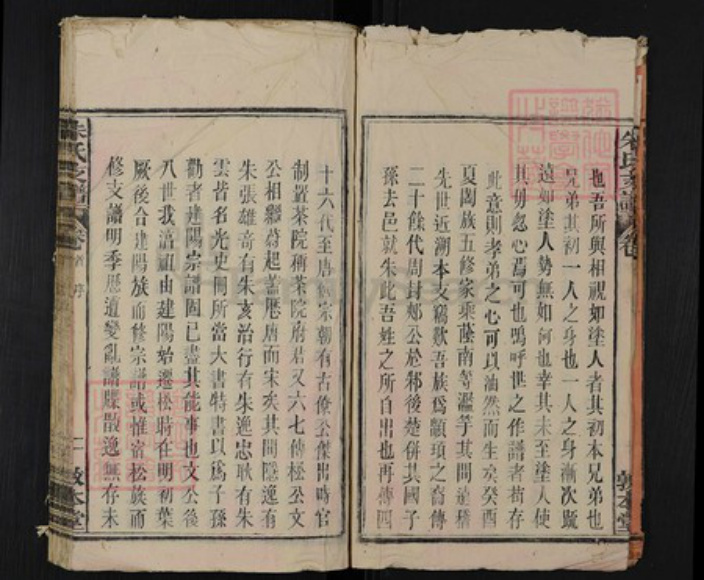 也吾所與相視如塗人者其初本兄弟也
兄弟其初一人之身也一人之身漸次緦
遠如塗人勢無如何也幸其未至塗人使
其毋忽心焉可也嗚呼世之作譜者苟存
此意則孝弟之心可以油然而生矣癸酉
夏闔族五修家乘蔭南等濫竽其間遠稽
先世近溯本支竊歎吾族爲顓頊之裔傳
二十餘代周封邾公於邾後楚併其國子
孫去邑就朱此吾姓之所自出也再傳四
十六代至唐 宗朝有古僚公傑出時官
制置茶院稱茶院府君又六七傳松公文
公相繼蔚起蓋歷唐而宋矣其間隱逸有
朱張雄奇有朱亥治行有朱邑忠耿有朱
雲皆名光史冊所當大書特書以爲子孫
勸者建陽宗譜固已盡其能事也文公後
八世我 祖由建陽始遷松時在明初葉
厥後合建陽族而修宗譜或惟富松族而
修支譜明季歷遭變亂譜牒散逸無存未
朱氏支譜 卷首 序 二 敦本堂
朱氏支譜 卷 敦本堂